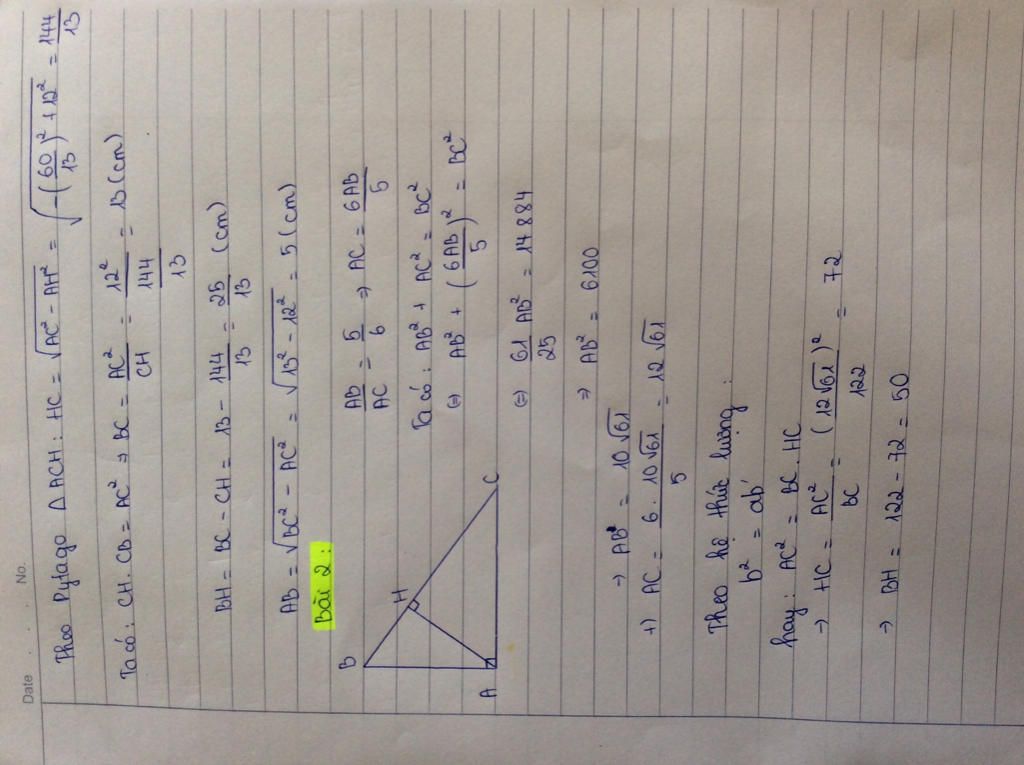 Date No.
Theo Pytago △ACH: HC = √(AC² - AH²) = √(-(60/13)² + 12²) = 144/13
Ta có: CH. CB = AC² → BC = AC²/CH = 12²/(144/13) = 13 (cm)
BH = BC - CH = 13 - 144/13 = 25/13 (cm)
AB = √(BC² - AC²) = √(13² - 12²) = 5 (cm)
Bài 2:
AB/AC = 5/6 ⇒ AC = 6AB/5
Ta có: AB² + AC² = BC²
⇔ AB² + (6AB/5)² = BC²
⇔ 61/25 AB² = 14884
⇒ AB² = 6100
B
H
A
C
→ AB = 10√61
+) AC = 6. 10√61/5 = 12√61
Theo hệ thức lượng:
b² = ab'
hay: AC² = BC. HC
→ HC = AC²/BC = (12√61)²/122 = 72
→ BH = 122 - 72 = 50